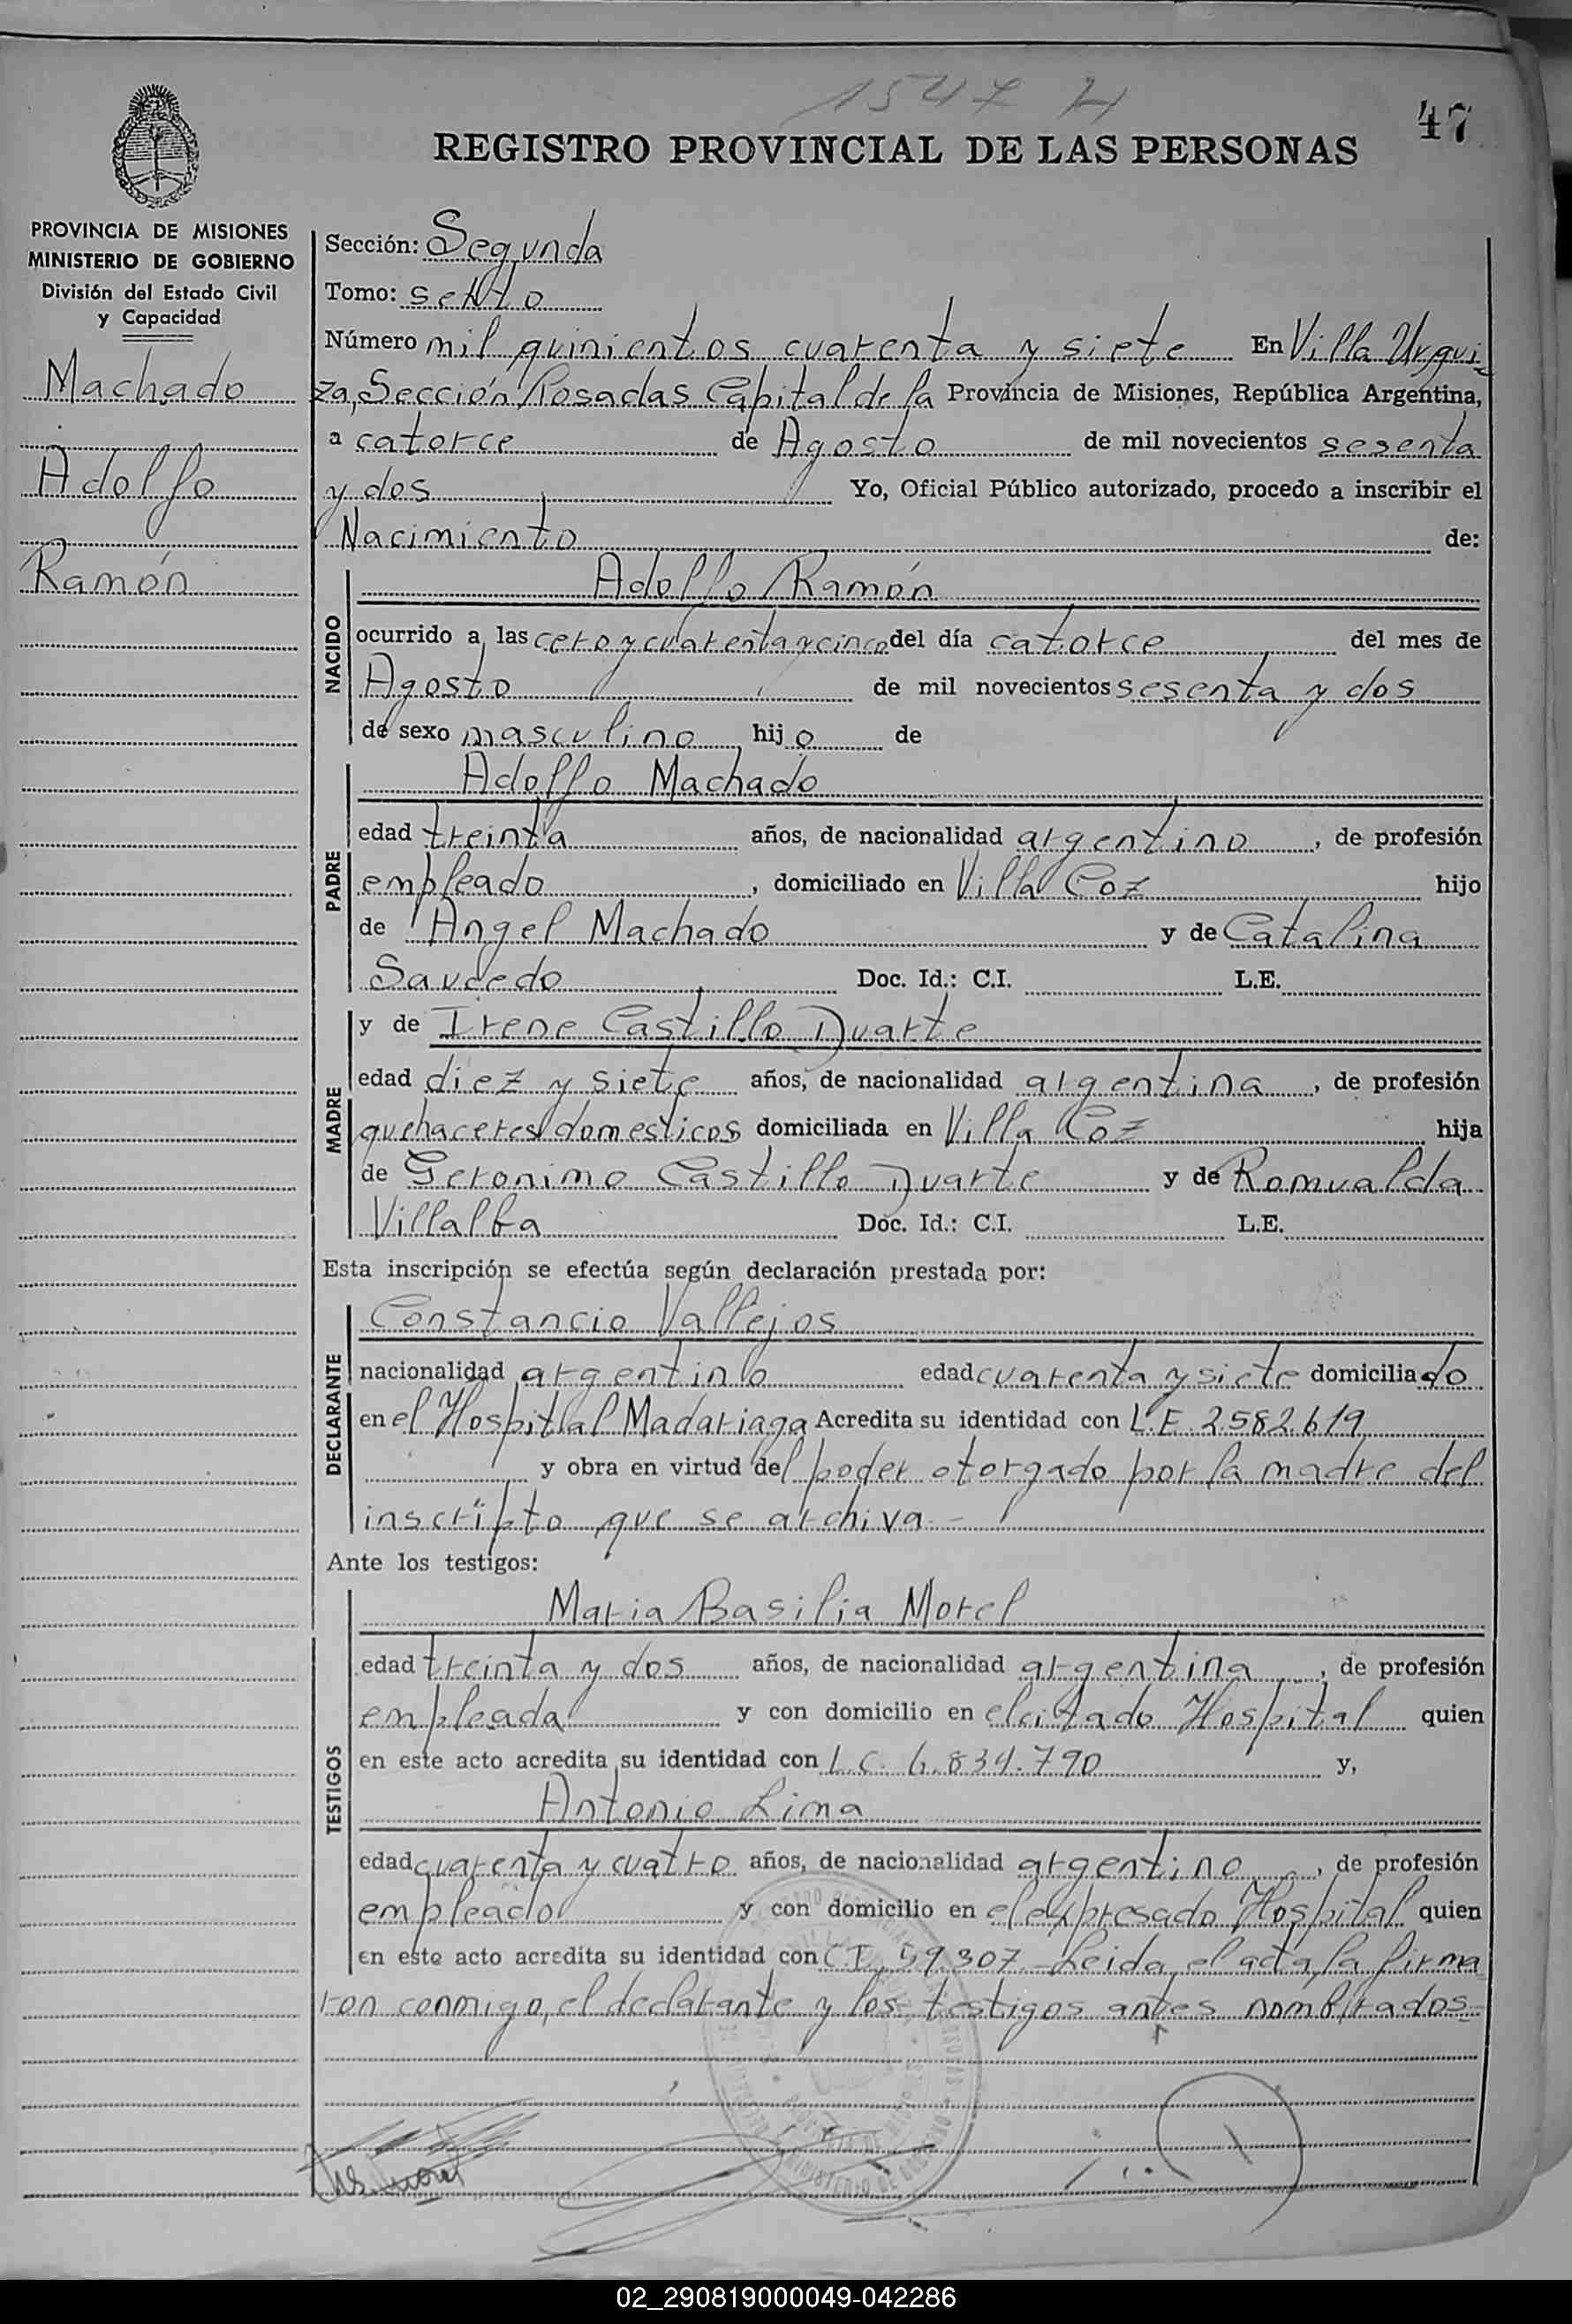 1547 H
47
REGISTRO PROVINCIAL DE LAS PERSONAS
PROVINCIA DE MISIONES
MINISTERIO DE GOBIERNO
División del Estado Civil
y Capacidad
Machado
Adolfo
Ramón
Sección: Segunda
Tomo: sexto
Número mil quinientos cuarenta y siete En Villa Urqui-
za, Sección Posadas Capital de la Provincia de Misiones, República Argentina,
a catorce de Agosto de mil novecientos sesenta
y dos Yo, Oficial Público autorizado, procedo a inscribir el
Nacimiento de:
NACIDO
Adolfo Ramón
ocurrido a las cero y cuarenta y cinco del día catorce del mes de
Agosto de mil novecientos sesenta y dos
de sexo masculino hijo de
PADRE
Adolfo Machado
edad treinta años, de nacionalidad argentino, de profesión
empleado, domiciliado en Villa Coz hijo
de Angel Machado y de Catalina
Saucedo Doc. Id.: C.I. L.E.
MADRE
y de Irene Castillo Duarte
edad diez y siete años, de nacionalidad argentina, de profesión
quehaceres domesticos domiciliada en Villa Coz hija
de Geronimo Castillo Duarte y de Romualda
Villalba Doc. Id.: C.I. L.E.
Esta inscripción se efectúa según declaración prestada por:
DECLARANTE
Constancio Vallejos
nacionalidad argentino edad cuarenta y siete domiciliado
en el Hospital Madariaga Acredita su identidad con L.E. 2.582.619
y obra en virtud del poder otorgado por la madre del
inscripto que se archiva.-
Ante los testigos:
TESTIGOS
Maria Basilia Morel
edad treinta y dos años, de nacionalidad argentina, de profesión
empleada y con domicilio en el citado Hospital quien
en este acto acredita su identidad con L.C. 6.834.790 y,
Antonio Lima
edad cuarenta y cuatro años, de nacionalidad argentino, de profesión
empleado y con domicilio en el expresado Hospital quien
en este acto acredita su identidad con C.I. 59.307.- Leida el acta, la firma
ron conmigo, el declarante y los testigos antes nombrados-
02_290819000049-042286